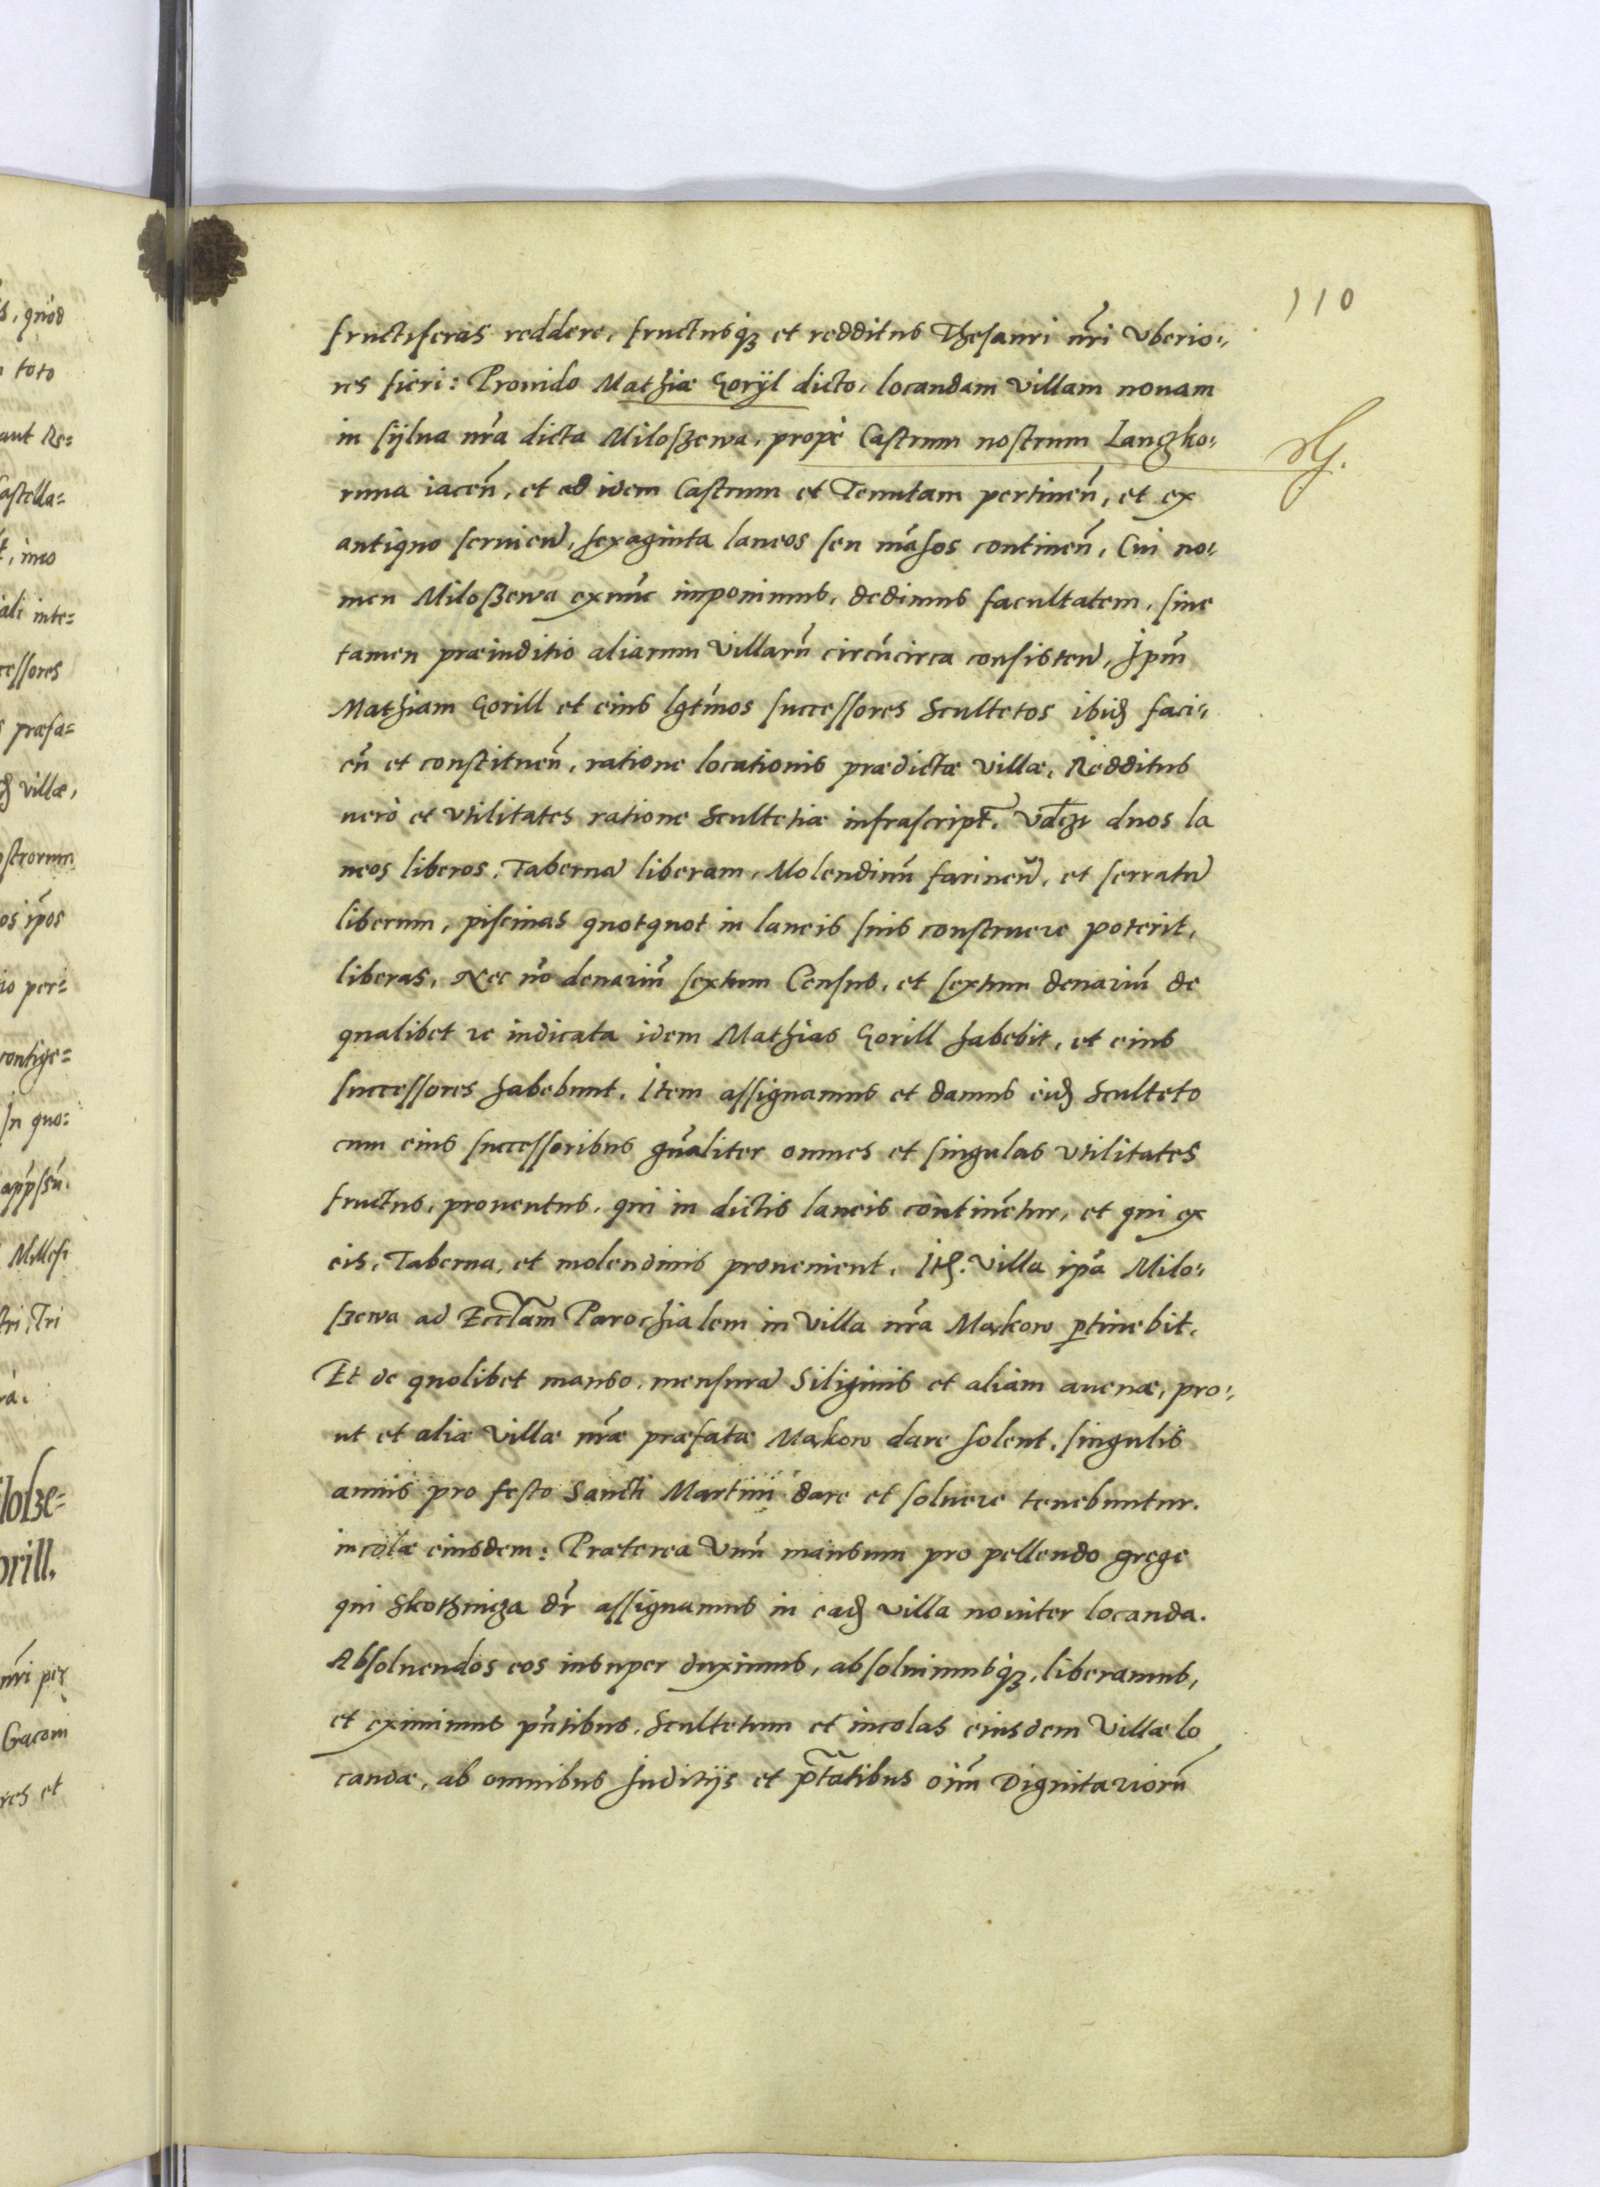 110
fructiferas reddere, fructusq₃ et redditus Thesauri nr̃i vberio:,
res fieri: Prouido Mathiæ Goryl dicto, locandam villam nouam
in sylua nr̃a dicta Miloszewa, propè Castrum nostrum Langko:,
runa iaceñ, et ad idem Castrum et Tenutam pertineñ, et ex
antiquo seruieñ, sexaginta laneos seu mãsos contineñ, Cui no:,
men Miloszewa exnũc imponimus, dedimus facultatem, sine
tamen præiuditio aliarum villarũ circũcirca consisteñ, Ipm̃
Mathiam Gorill et eius lgt̃imos successores Scultetos ibid̃ faci:,
eñ et constitueñ, ratione locationis prædictæ villæ, Redditus
verò et vtilitates ratione Scultetiæ infrascript̃. Vdczt duos la
neos liberos, Tabernã liberam, Molendinũ farineũ, et serratũ
liberum, piscinas quotquot in laneis suis construere poterit,
liberas, Nec nõ denariũ sextum Census, et sextum denariũ de
qualibet re iudicata idem Mathias Gorill habebit, et eius
successores habebunt. Item assignamus et damus eid̃ Sculteto
cum eius successoribus gñaliter omnes et singulas vtilitates
fructus, prouentus, qui in dictis laneis continẽtur, et qui ex
eis, Taberna, et molendinis prouenient. Itẽ. villa ip̃a Milo:,
szewa ad Eccl̃am Parochialem in villa nr̃a Makow ꝑtinebit.
Et de quolibet manso, mensurã Siliginis et aliam auenæ, pro:,
ut et aliæ villæ nr̃æ præfatæ Makow dare solent, singulis
annis pro festo Sancti Martini dare et soluere tenebuntur.
incolæ eiusdem: Præterea Vnũ mansum pro pellendo grege
qui Skothnicza dr̃ assignamus in ead̃ villa nouiter locanda.
Absoluendos eos insuper duximus, absoluimusq₃, liberamus,
et eximimus pñtibus, Scultetum et incolas eiusdem Villæ lo
candæ, ab omnibus Juditijs et p̃tãtibus oĩm Dignitariorũ